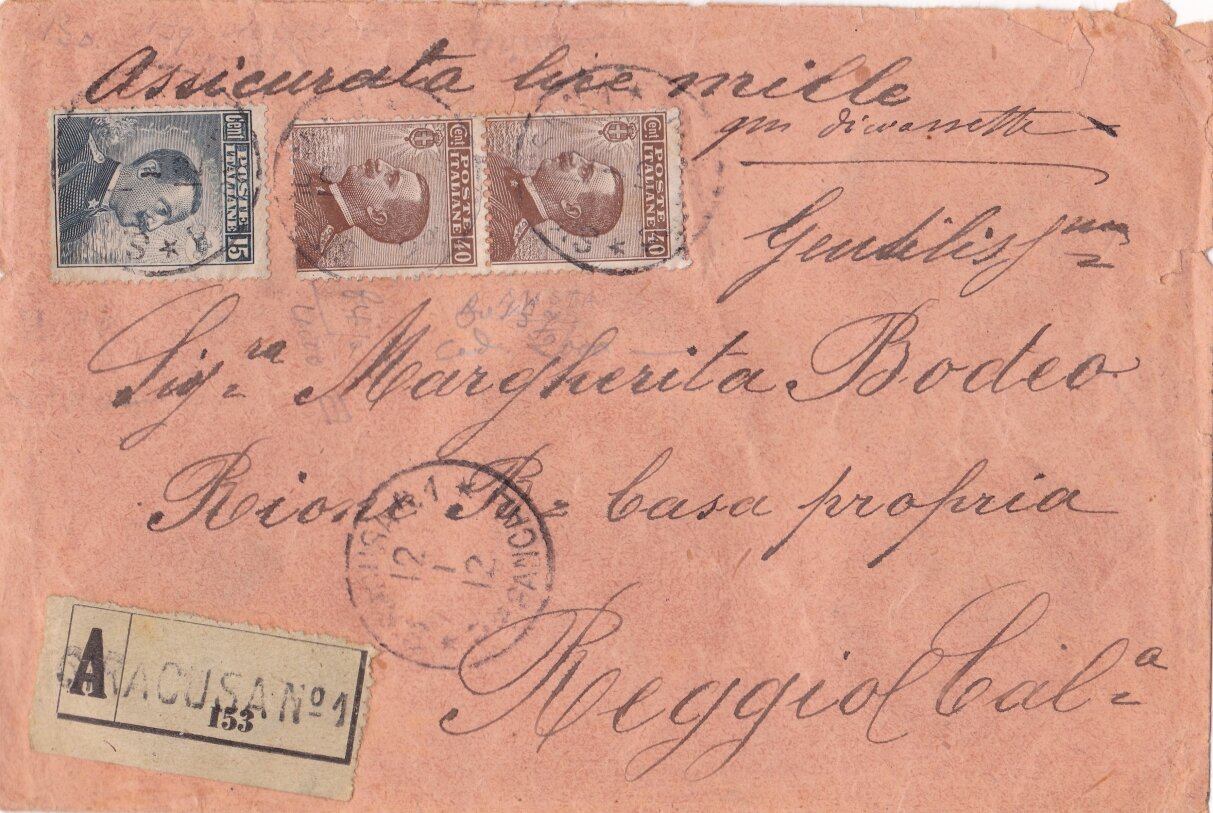 Assicurata lire mille
Gentiliss.ma
Sig.ra Margherita Bodeo
Rione R= Casa propria
Reggio Cal.a
Cent POSTE ITALIANE 15
Cent POSTE ITALIANE 40
Cent POSTE ITALIANE 40
12 1 12
A
SIRACUSA No 1
153